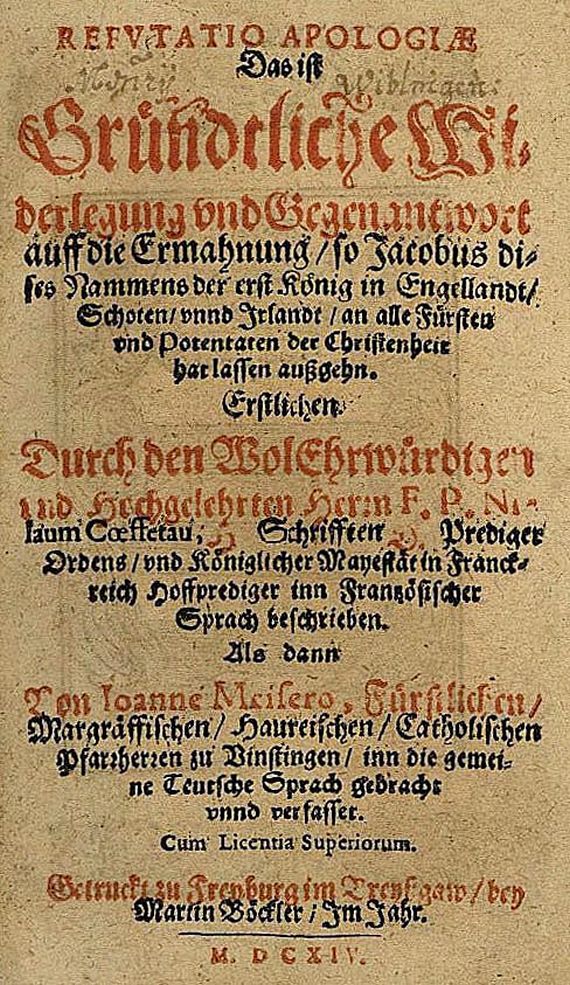 REFVTATIO APOLOGIÆ
Das ist
Gründtliche Wi-
derlegung vnd Gegenantwort
auff die Ermahnung / so Jacobus di-
ses Nammens der erst König in Engellandt /
Schoten / vnnd Jrlandt / an alle Fürsten
vnd Potentaten der Christenheit
hat lassen außgehn.
Erstlichen
Durch den WolEhrwürdigen
vnd Hochgelehrten Herrn F. P. Ni-
laum Cœffetau, H. Schrifften D. Prediger
Ordens / vnd Königlicher Mayestät in Franck-
reich Hoffprediger inn Frantzösischer
Sprach beschrieben.
Als dann
Von Ioanne Meisero, Fürstlichen /
Margräffischen / Haureischen / Catholischen
Pfarrherren zu Vinstingen / inn die gemei-
ne Teutsche Sprach gebracht
vnnd verfasset.
Cum Licentia Superiorum.
Getruckt zu Freyburg im Breyßgaw / bey
Martin Böckler / Jm Jahr.
M. D C XIV.